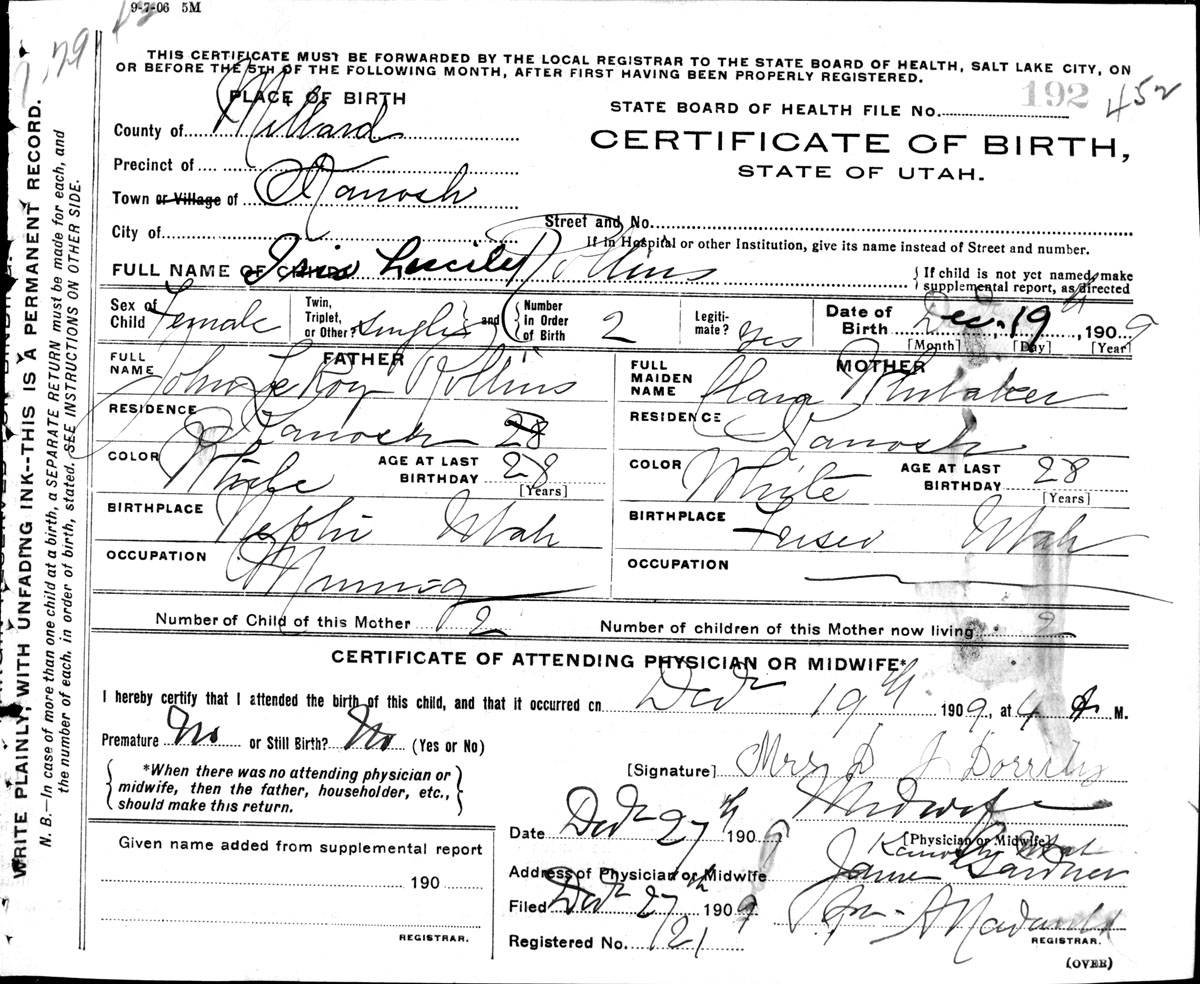 9-7-06 5M
THIS CERTIFICATE MUST BE FORWARDED BY THE LOCAL REGISTRAR TO THE STATE BOARD OF HEALTH, SALT LAKE CITY, ON
OR BEFORE THE 5TH OF THE FOLLOWING MONTH, AFTER FIRST HAVING BEEN PROPERLY REGISTERED.
PLACE OF BIRTH
STATE BOARD OF HEALTH FILE No. 192 452
County of Millard
CERTIFICATE OF BIRTH,
STATE OF UTAH.
Precinct of
Town or Village of Kanosh
Street and No.
City of
If in Hospital or other Institution, give its name instead of Street and number.
FULL NAME OF CHILD Iris Lucile Rollins
If child is not yet named, make
supplemental report, as directed
Sex of Child Female
Twin, Triplet, or Other? Single and Number in Order of Birth 2
Legiti-mate? Yes
Date of Birth Dec. 19th, 1909
[Month] [Day] [Year]
FATHER
FULL NAME John LeRoy Rollins
RESIDENCE Kanosh 28
COLOR White AGE AT LAST BIRTHDAY 28
[Years]
BIRTHPLACE Nephi Utah
OCCUPATION Mining
MOTHER
FULL MAIDEN NAME Clara Whitaker
RESIDENCE Kanosh
COLOR White AGE AT LAST BIRTHDAY 28
[Years]
BIRTHPLACE Utah
OCCUPATION
Number of Child of this Mother 2 Number of children of this Mother now living 2
CERTIFICATE OF ATTENDING PHYSICIAN OR MIDWIFE*
I hereby certify that I attended the birth of this child, and that it occurred on Decr 19th 1909, at 4 A M.
Premature No or Still Birth? No (Yes or No)
*When there was no attending physician or
midwife, then the father, householder, etc.,
should make this return.
[Signature] Mrs D J
Midwife
[Physician or Midwife]
Date Decr 27th 1909
Kanosh Utah
Address of Physician or Midwife James Gardner
Filed Decr 27th 1909
REGISTRAR.
Registered No. 121
(OVER)
Given name added from supplemental report
190
REGISTRAR.
WRITE PLAINLY, WITH UNFADING INK--THIS IS A PERMANENT RECORD.
N. B.—In case of more than one child at a birth, a SEPARATE RETURN must be made for each, and
the number of each, in order of birth, stated. SEE INSTRUCTIONS ON OTHER SIDE.